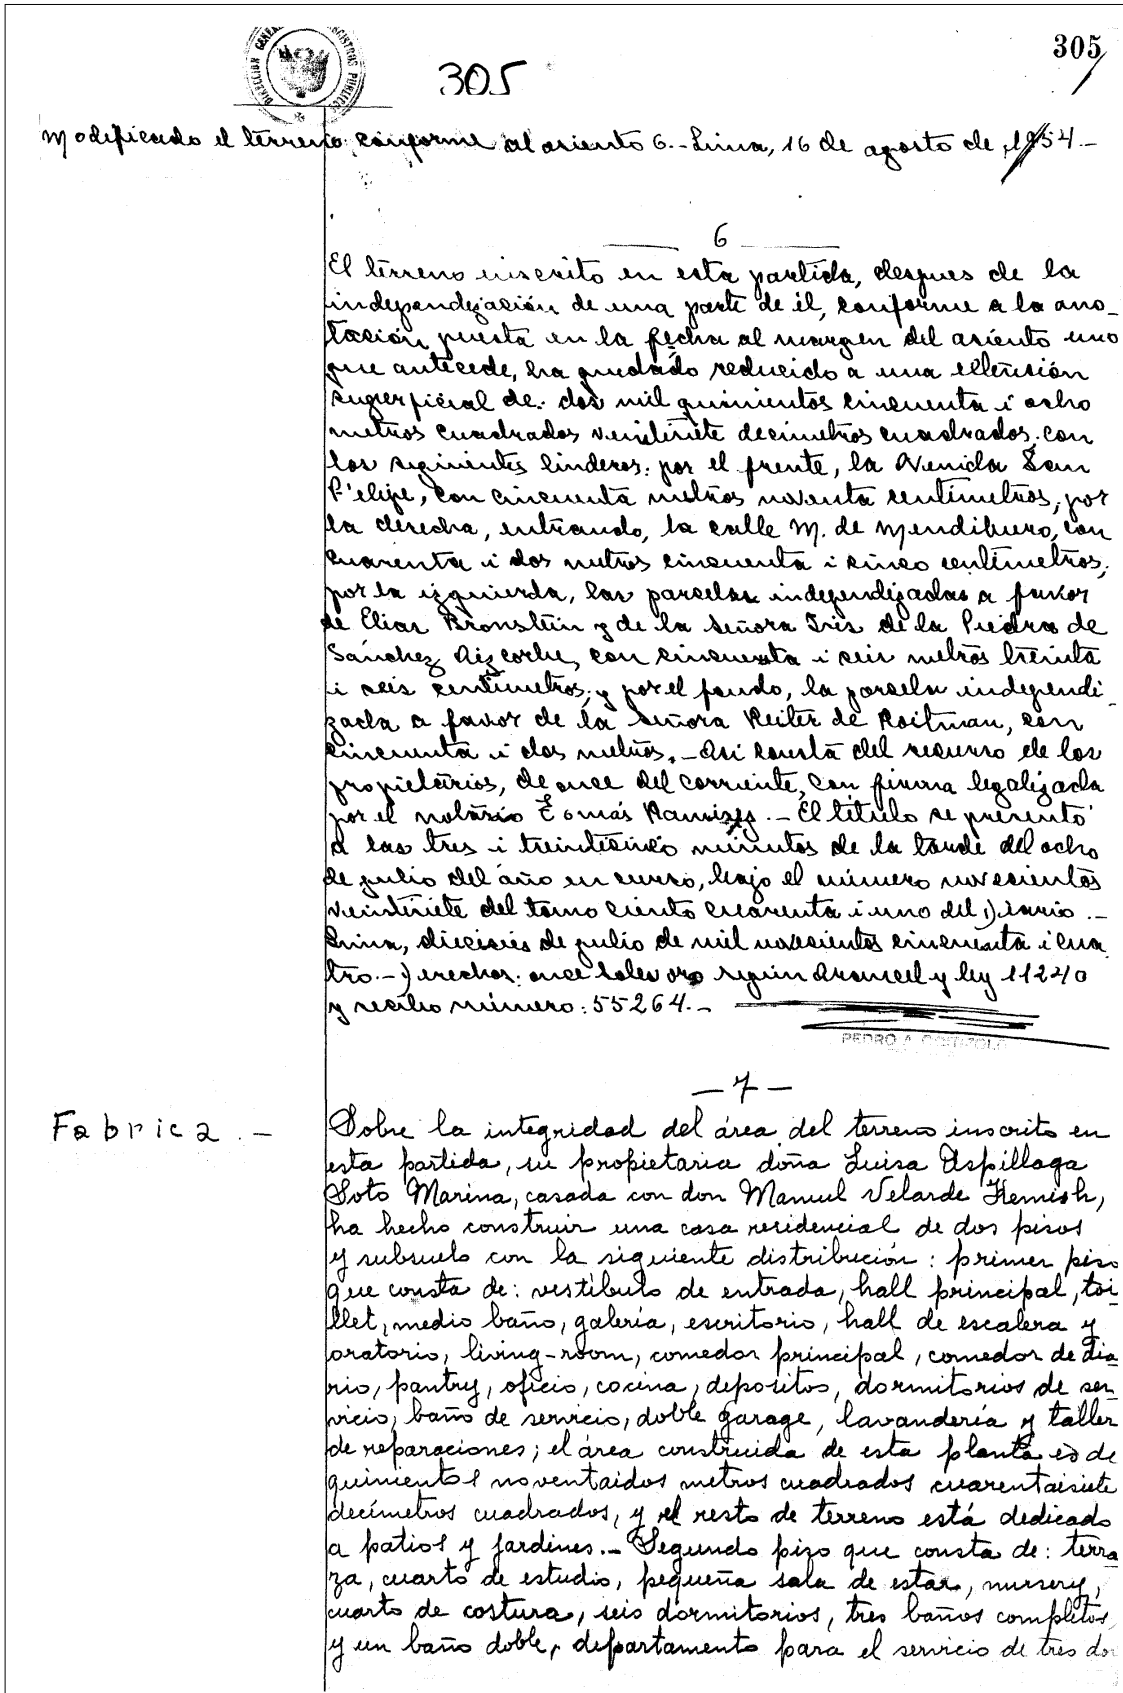 305
305
DIRECCION GENERAL REGISTROS PUBLICOS
Modificado el terreno conforme al asiento 6.- Lima, 16 de agosto de 1954.-
6
El terreno inscrito en esta partida, despues de la
independización de una parte de él, conforme a la ano-
tación puesta en la fecha al margen del asiento uno
que antecede, ha quedado reducido a una extensión
superficial de: dos mil quinientos cincuenta i ocho
metros cuadrados veintisiete decimetros cuadrados, con
los siguientes linderos: por el frente, la Avenida San
Felipe, con cincuenta metros noventa centimetros, por
la derecha, entrando, la calle M. de Mendiburo, con
cuarenta i dos metros cincuenta i cinco centimetros,
por la izquierda, las parcelas independizadas a favor
de Elias Bronstein y de la señora Iris de la Piedra de
Sánchez Aizcorbe, con cincuenta i seis metros treinta
i seis centimetros, y por el fondo, la parcela independi-
zada a favor de la señora Reiter de Roitman, con
cincuenta i dos metros.- Asi consta del recurso de los
propietarios, de once del corriente, con firma legalizada
por el notario Tomás Ramirez.- El titulo se presentó
a las tres i treinticinco minutos de la tarde del ocho
de julio del año en curso, bajo el número novecientos
veintisiete del tomo ciento cuarenta i uno del Diario.-
Lima, dieciseis de julio de mil novecientos cincuenta i cua
tro.- Derechos: once soles oro según Arancel y ley 11240
y recibo número: 55264.-
PEDRO A.
-7-
Fabrica.-
Sobre la integridad del área del terreno inscrito en
esta partida, su propietaria doña Luisa Aspillaga
Soto Marina, casada con don Manuel Velarde Kemish,
ha hecho construir una casa residencial de dos pisos
y subsuelo con la siguiente distribución: primer piso
que consta de: vestíbulo de entrada, hall principal, toi
llet, medio baño, galería, escritorio, hall de escalera y
oratorio, living-room, comedor principal, comedor de dia
rio, pantry, oficio, cocina, depositos, dormitorios de ser
vicio, baño de servicio, doble garage, lavandería y taller
de reparaciones; el área construida de esta planta es de
quinientos noventaidos metros cuadrados cuarentaisiete
decímetros cuadrados, y el resto de terreno está dedicado
a patios y jardines.- Segundo piso que consta de: terra
za, cuarto de estudio, pequeña sala de estar, nursery,
cuarto de costura, seis dormitorios, tres baños completos
y un baño doble, departamento para el servicio de tres do